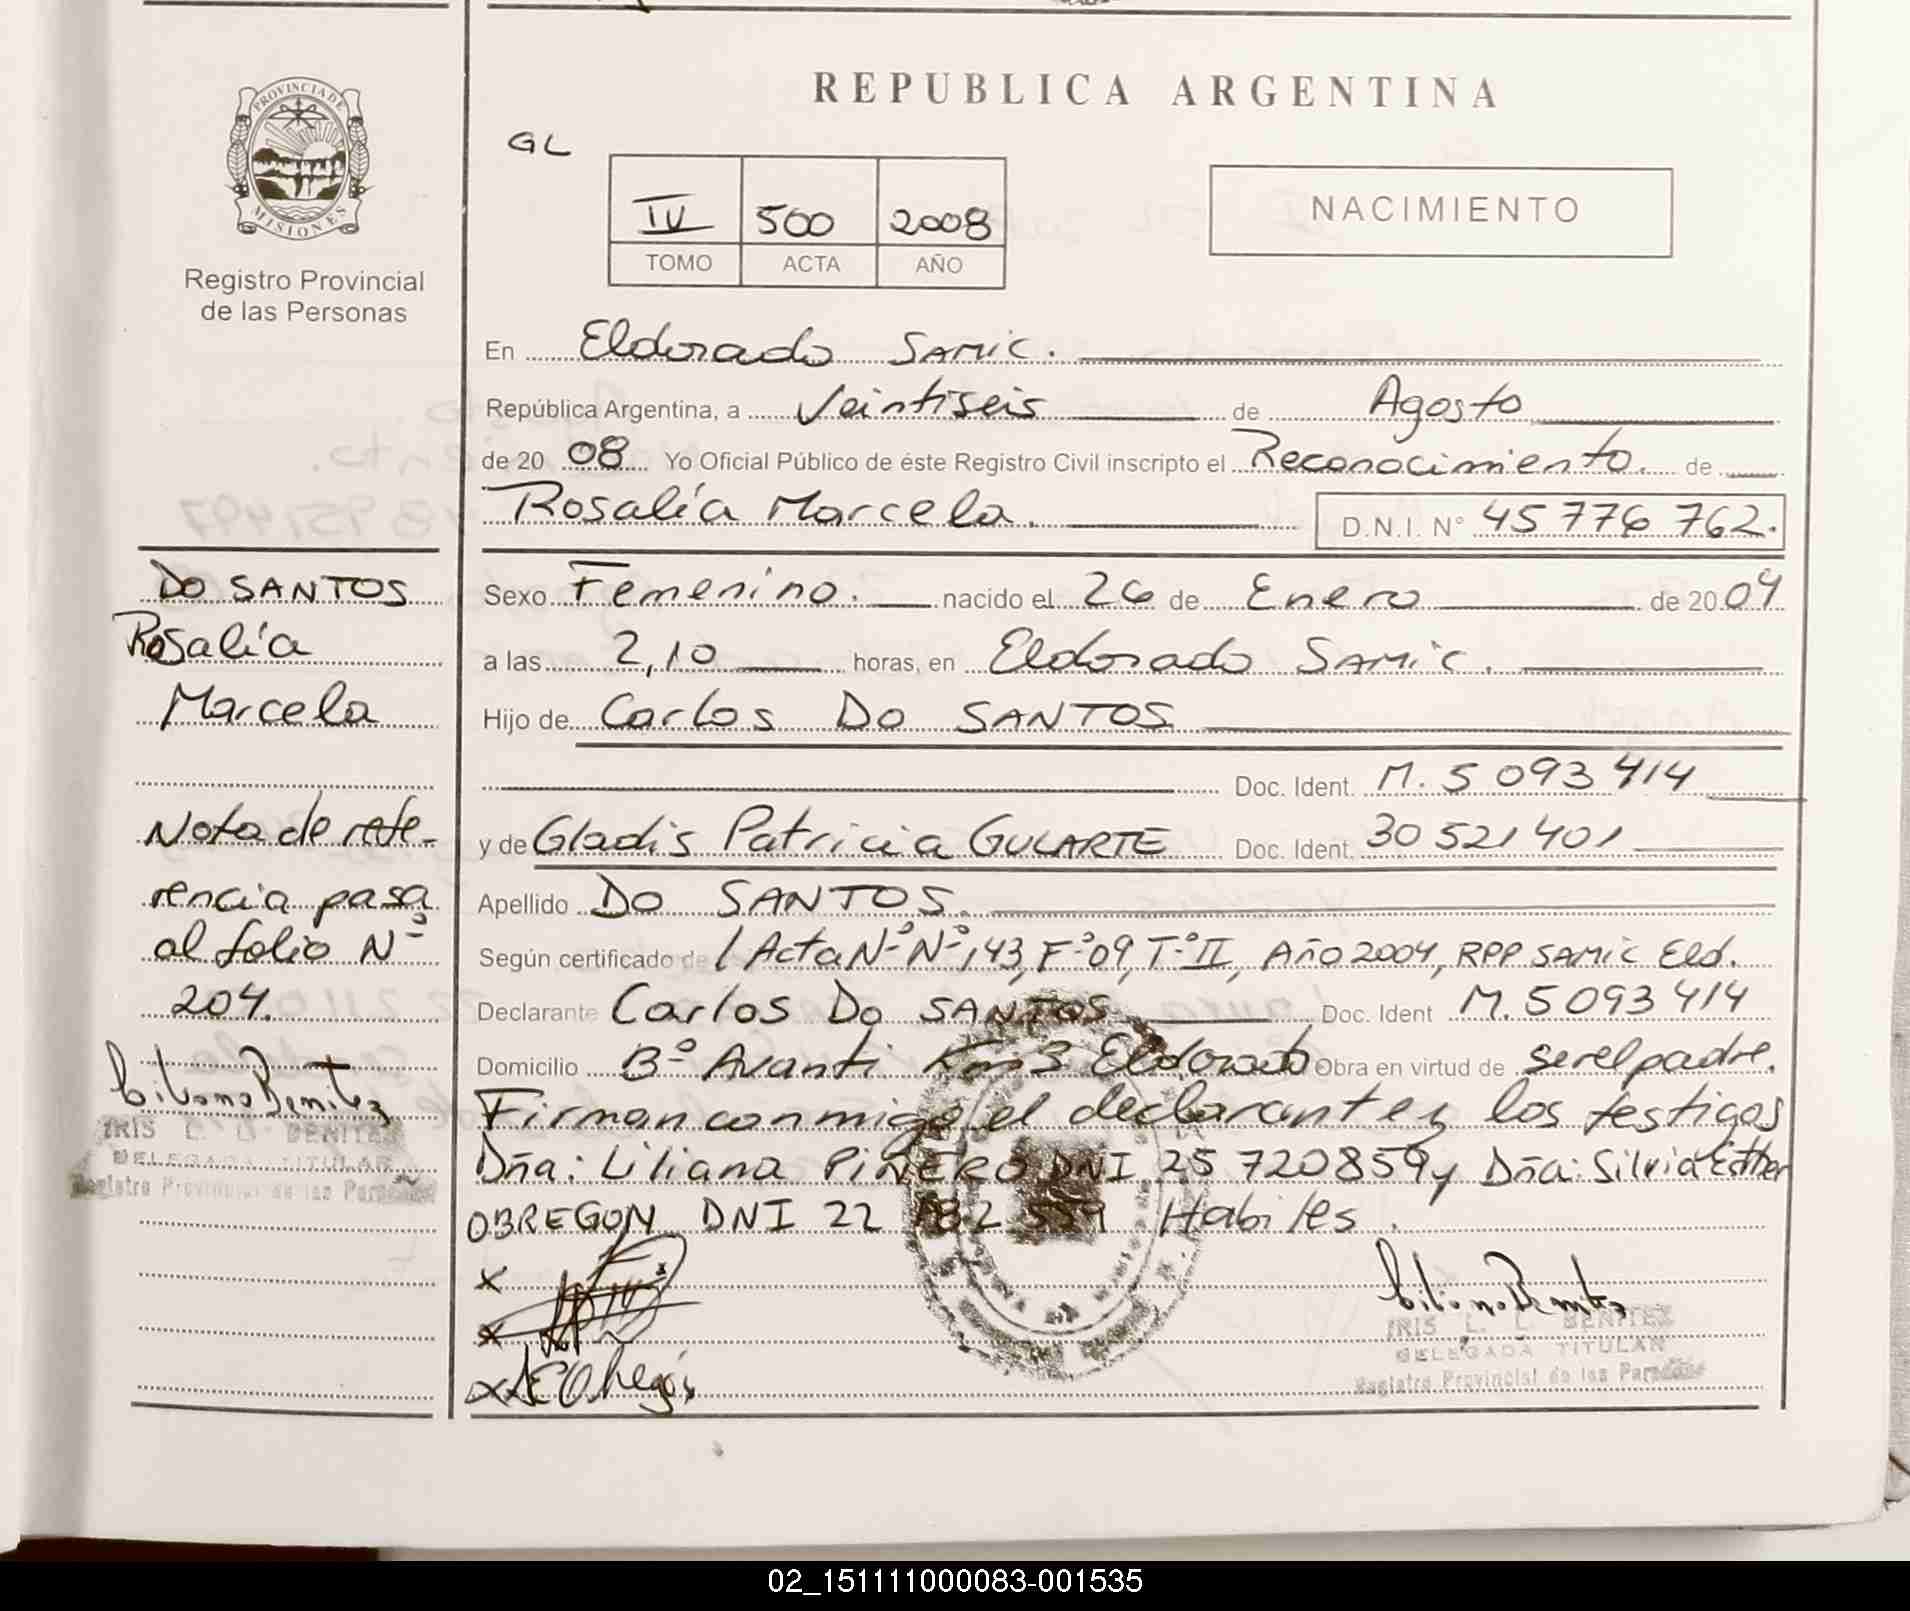 REPUBLICA ARGENTINA
PROVINCIA DE
MISIONES
Registro Provincial
de las Personas
GL
IV 500 2008
TOMO ACTA AÑO
NACIMIENTO
En Eldorado SAMIC.
República Argentina, a Veintiseis de Agosto
de 20 08 Yo Oficial Público de éste Registro Civil inscripto el Reconocimiento. de
Rosalía Marcela. D.N.I. N° 45 776 762.
DO SANTOS
Rosalía
Marcela
Nota de refe-
rencia pasa
al folio Nº
204.
IRIS L. BENITEZ
DELEGADA TITULAR
Registro Provincial de las Personas
Sexo Femenino. nacido el 26 de Enero de 20 04
a las 2,10 horas, en Eldorado SAMIC.
Hijo de Carlos DO SANTOS
Doc. Ident. M. 5 093 414
y de Gladis Patricia GULARTE Doc. Ident. 30 521 401
Apellido DO SANTOS.
Según certificado de / Acta Nº Nº 143, Fº 09, Tº II, Año 2004, RPP SAMIC Eld.
Declarante Carlos Do SANTOS Doc. Ident M. 5 093 414
Domicilio Bº Avanti Km 3 Eldorado Obra en virtud de ser el padre.
Firman conmigo el declarante y los testigos
Dña: Liliana PIÑERO DNI 25 720 859 y Dña: Silvia Esther
OBREGON DNI 22 Habiles.
x
x
x
IRIS L. L. BENITEZ
DELEGADA TITULAR
Registro Provincial de las Personas
02_151111000083-001535